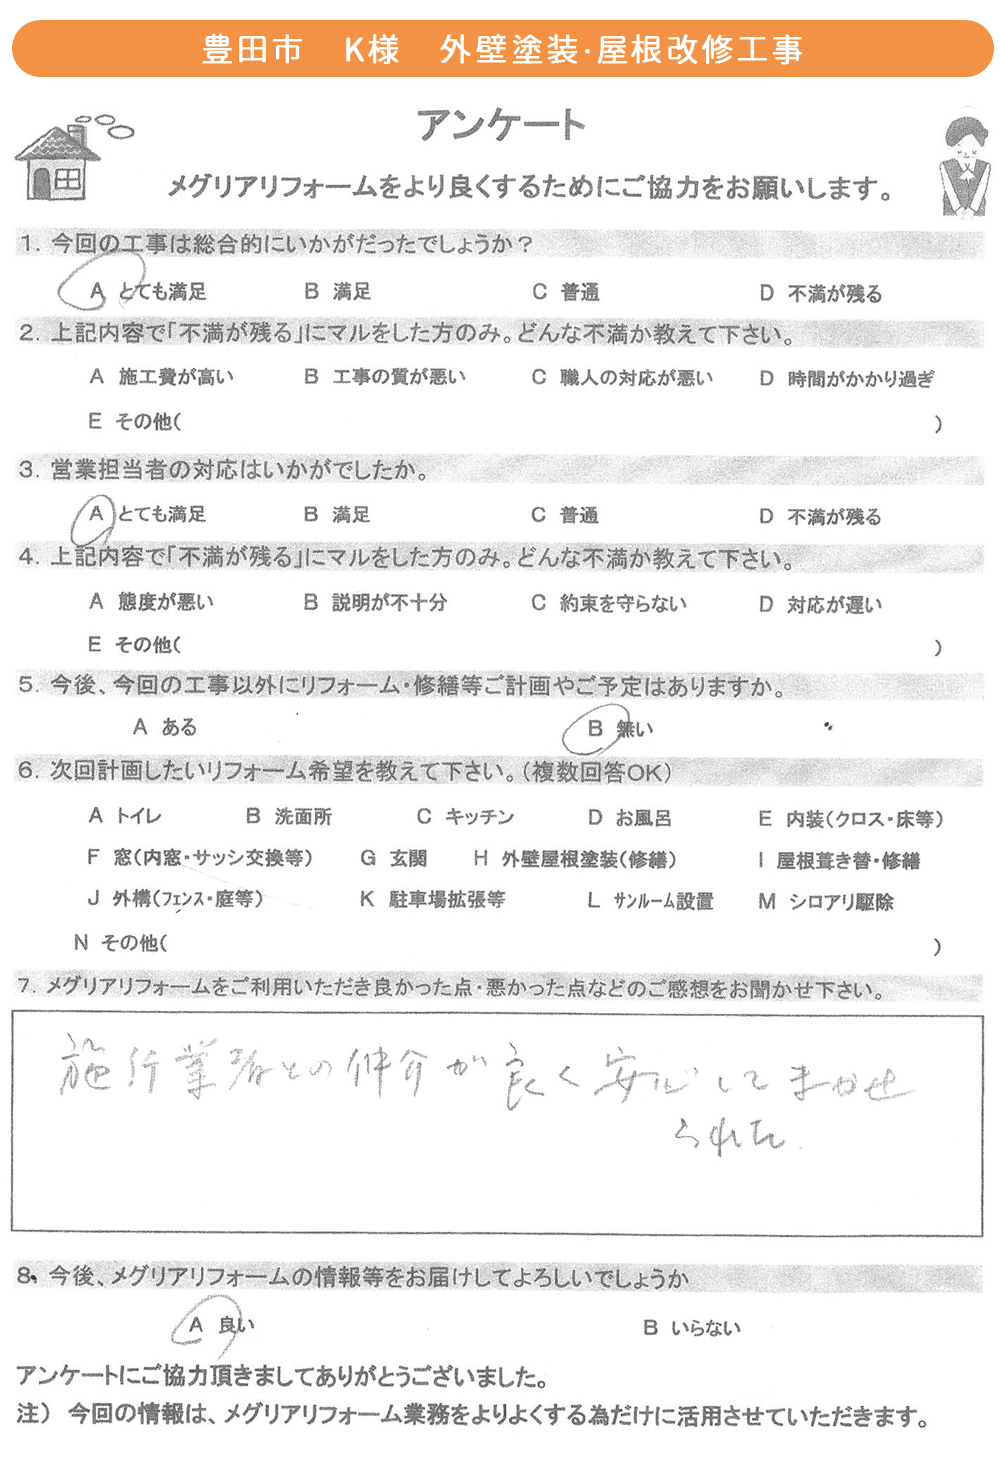 豊田市 K様 外壁塗装・屋根改修工事
アンケート
メグリアリフォームをより良くするためにご協力をお願いします。
1. 今回の工事は総合的にいかがだったでしょうか？
A とても満足 B 満足 C 普通 D 不満が残る
2. 上記内容で「不満が残る」にマルをした方のみ。どんな不満か教えて下さい。
A 施工費が高い B 工事の質が悪い C 職人の対応が悪い D 時間がかかり過ぎ
E その他( )
3. 営業担当者の対応はいかがでしたか。
A とても満足 B 満足 C 普通 D 不満が残る
4. 上記内容で「不満が残る」にマルをした方のみ。どんな不満か教えて下さい。
A 態度が悪い B 説明が不十分 C 約束を守らない D 対応が遅い
E その他( )
5. 今後、今回の工事以外にリフォーム・修繕等ご計画やご予定はありますか。
A ある B 無い
6. 次回計画したいリフォーム希望を教えて下さい。(複数回答OK)
A トイレ B 洗面所 C キッチン D お風呂 E 内装(クロス・床等)
F 窓(内窓・サッシ交換等) G 玄関 H 外壁屋根塗装(修繕) I 屋根葺き替・修繕
J 外構(フェンス・庭等) K 駐車場拡張等 L サンルーム設置 M シロアリ駆除
N その他( )
7. メグリアリフォームをご利用いただき良かった点・悪かった点などのご感想をお聞かせ下さい。
施行業者との仲介が良く安心してまかせ
られた.
8. 今後、メグリアリフォームの情報等をお届けしてよろしいでしょうか
A 良い B いらない
アンケートにご協力頂きましてありがとうございました。
注) 今回の情報は、メグリアリフォーム業務をよりよくする為だけに活用させていただきます。